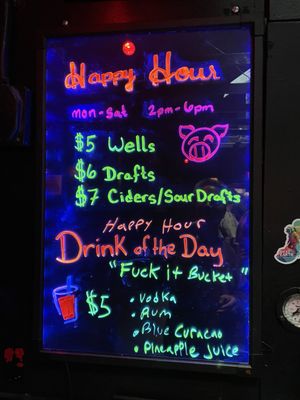 Happy Hour
mon-sat 2pm-6pm
$5 Wells
$6 Drafts
$7 Ciders/Sour Drafts
Happy Hour
Drink of the Day
"Fuck it Bucket"
$5
• Vodka
• Rum
• Blue Curacao
• Pineapple Juice